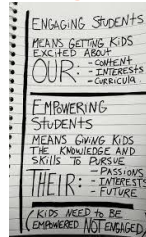 ENGAGING STUDENTS
MEANS GETTING KIDS
EXCITED ABOUT
OUR: - CONTENT
- INTERESTS
- CURRICULA
EMPOWERING
STUDENTS
MEANS GIVING KIDS
THE KNOWLEDGE AND
SKILLS TO PURSUE
THEIR: - PASSIONS
- INTERESTS
- FUTURE
(KIDS NEED TO BE
EMPOWERED NOT ENGAGED)